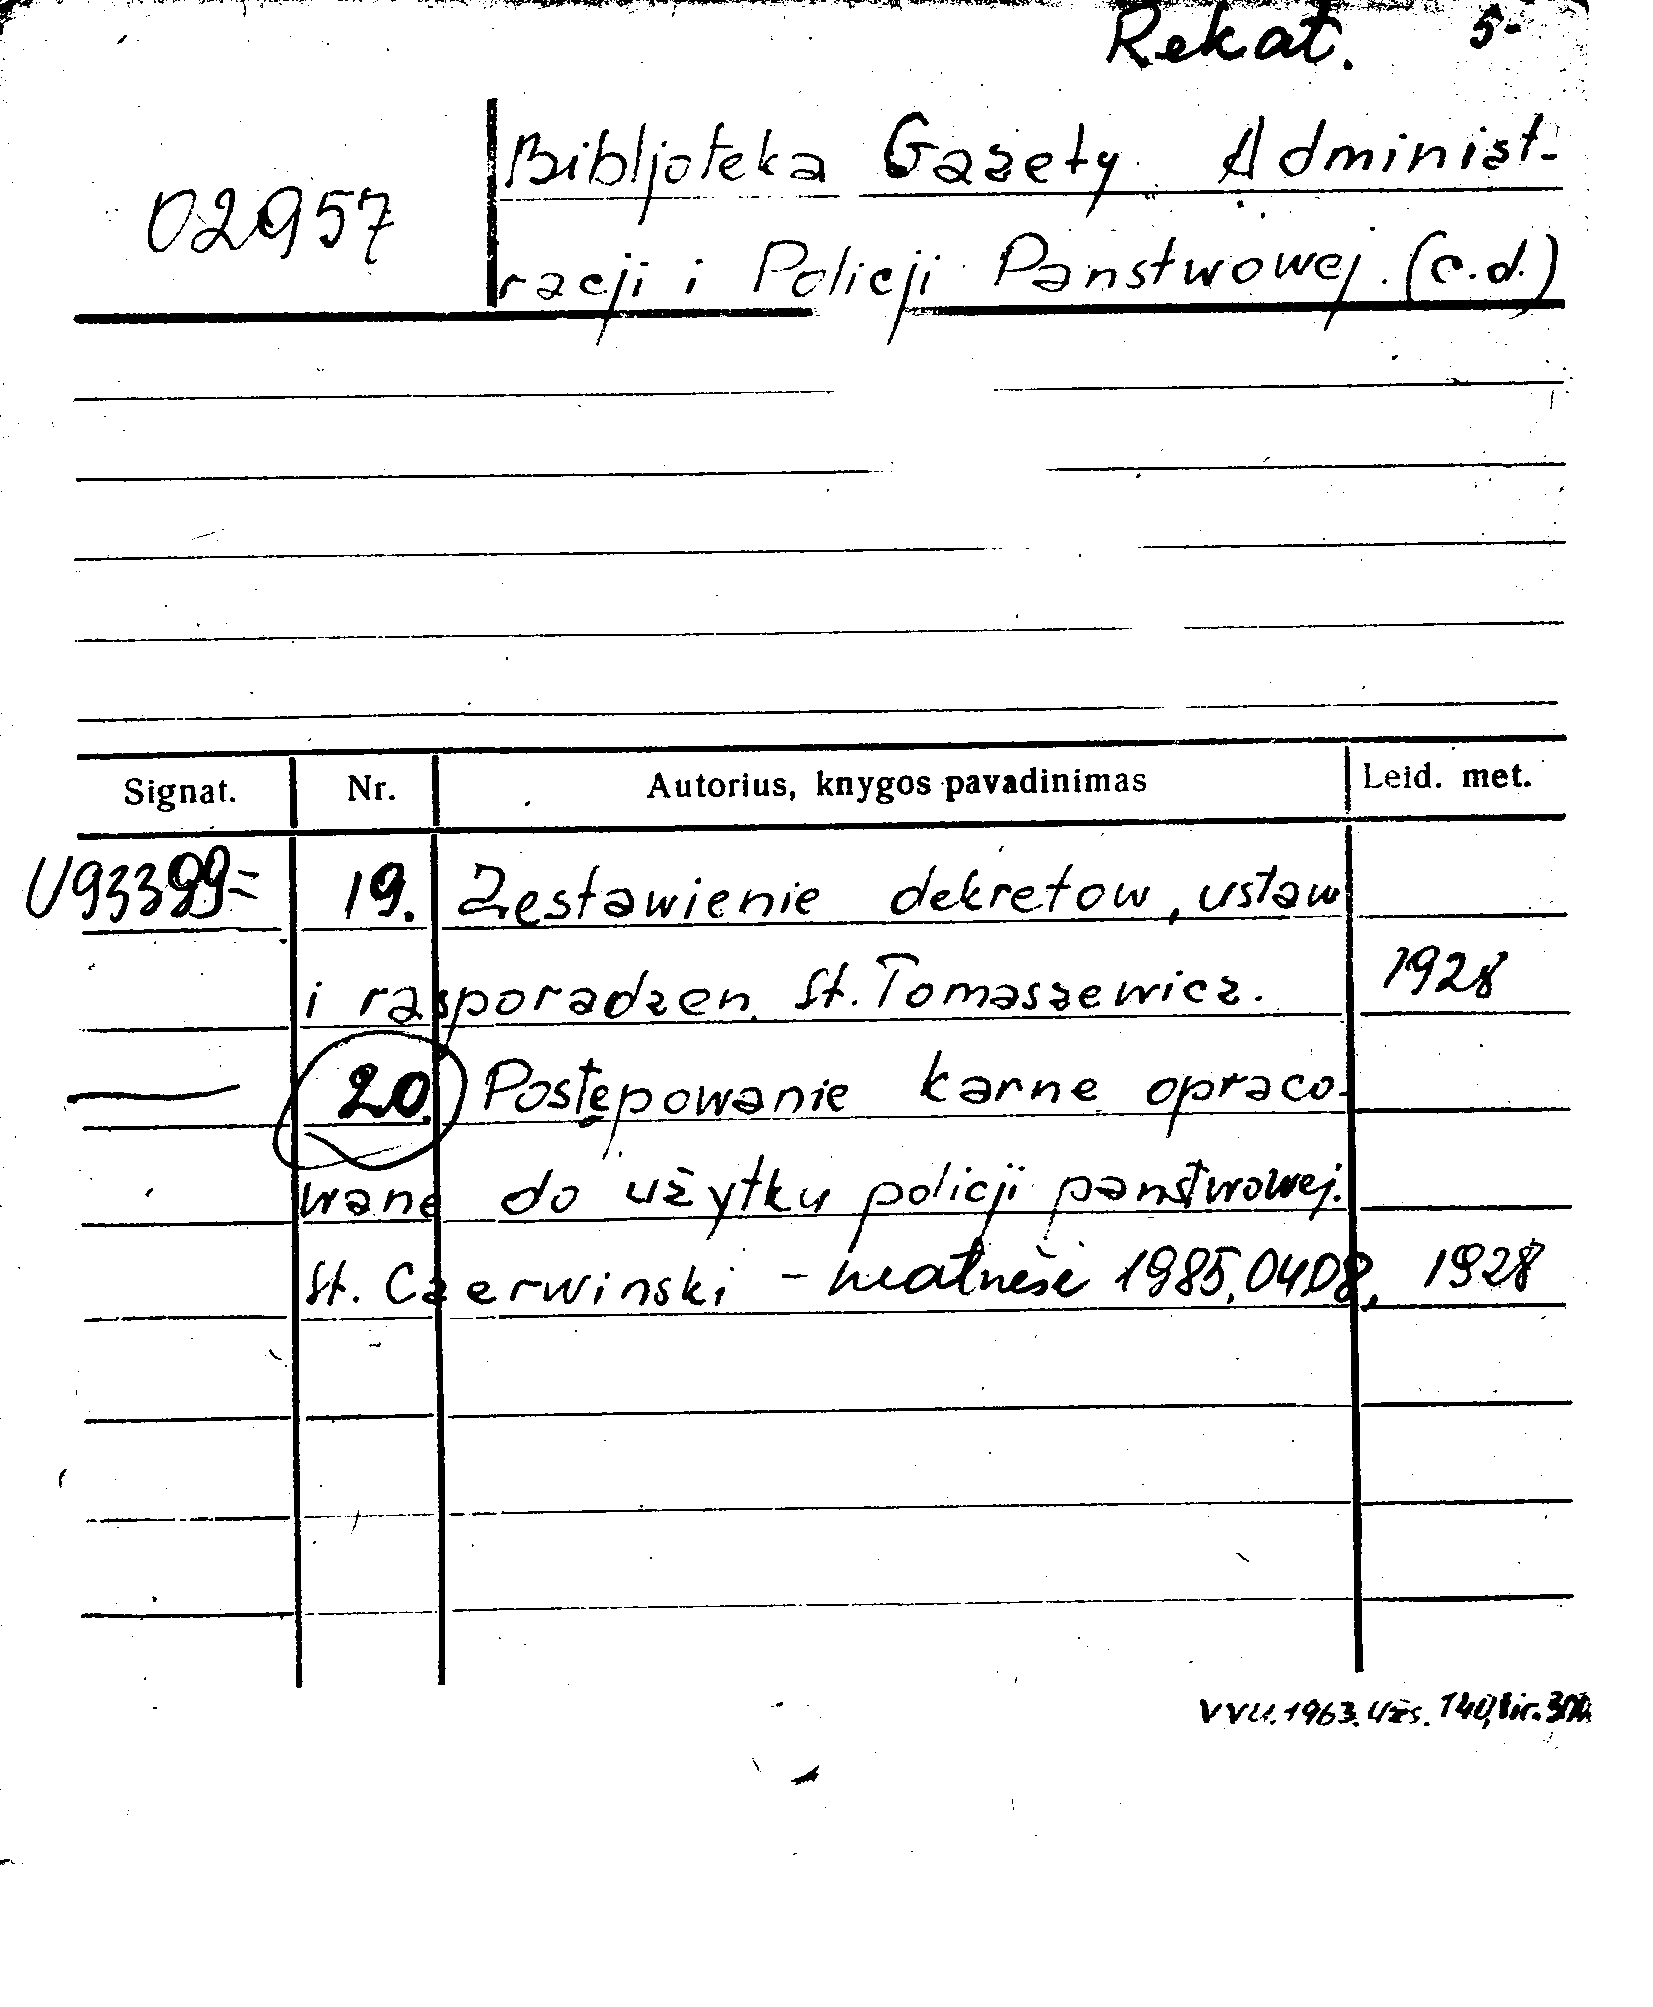 Rekat. 5-
Bibljoteka Gazety Administ-
02957
racji i Policji Panstwowej. (c.d.)
Signat. Nr. Autorius, knygos pavadinimas Leid. met.
U93399= 19. Zestawienie dekretow, ustaw
i rasporadzen. St. Tomaszewicz. 1928
20. Postępowanie karne opraco-
wane do użytku policji panstwowej.
St. Czerwinski - neatnešė 1985.04.08, 1928
VVU. 1963. Užs. 140, tir.